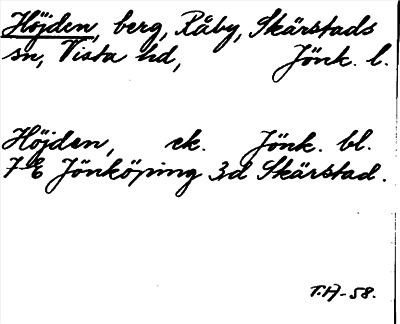 Höjden, berg, Råby, Skärstads
sn, Vista hd, Jönk. l.
Höjden, ek. Jönk. bl.
7 E Jönköping 3d Skärstad.
T.H-58.